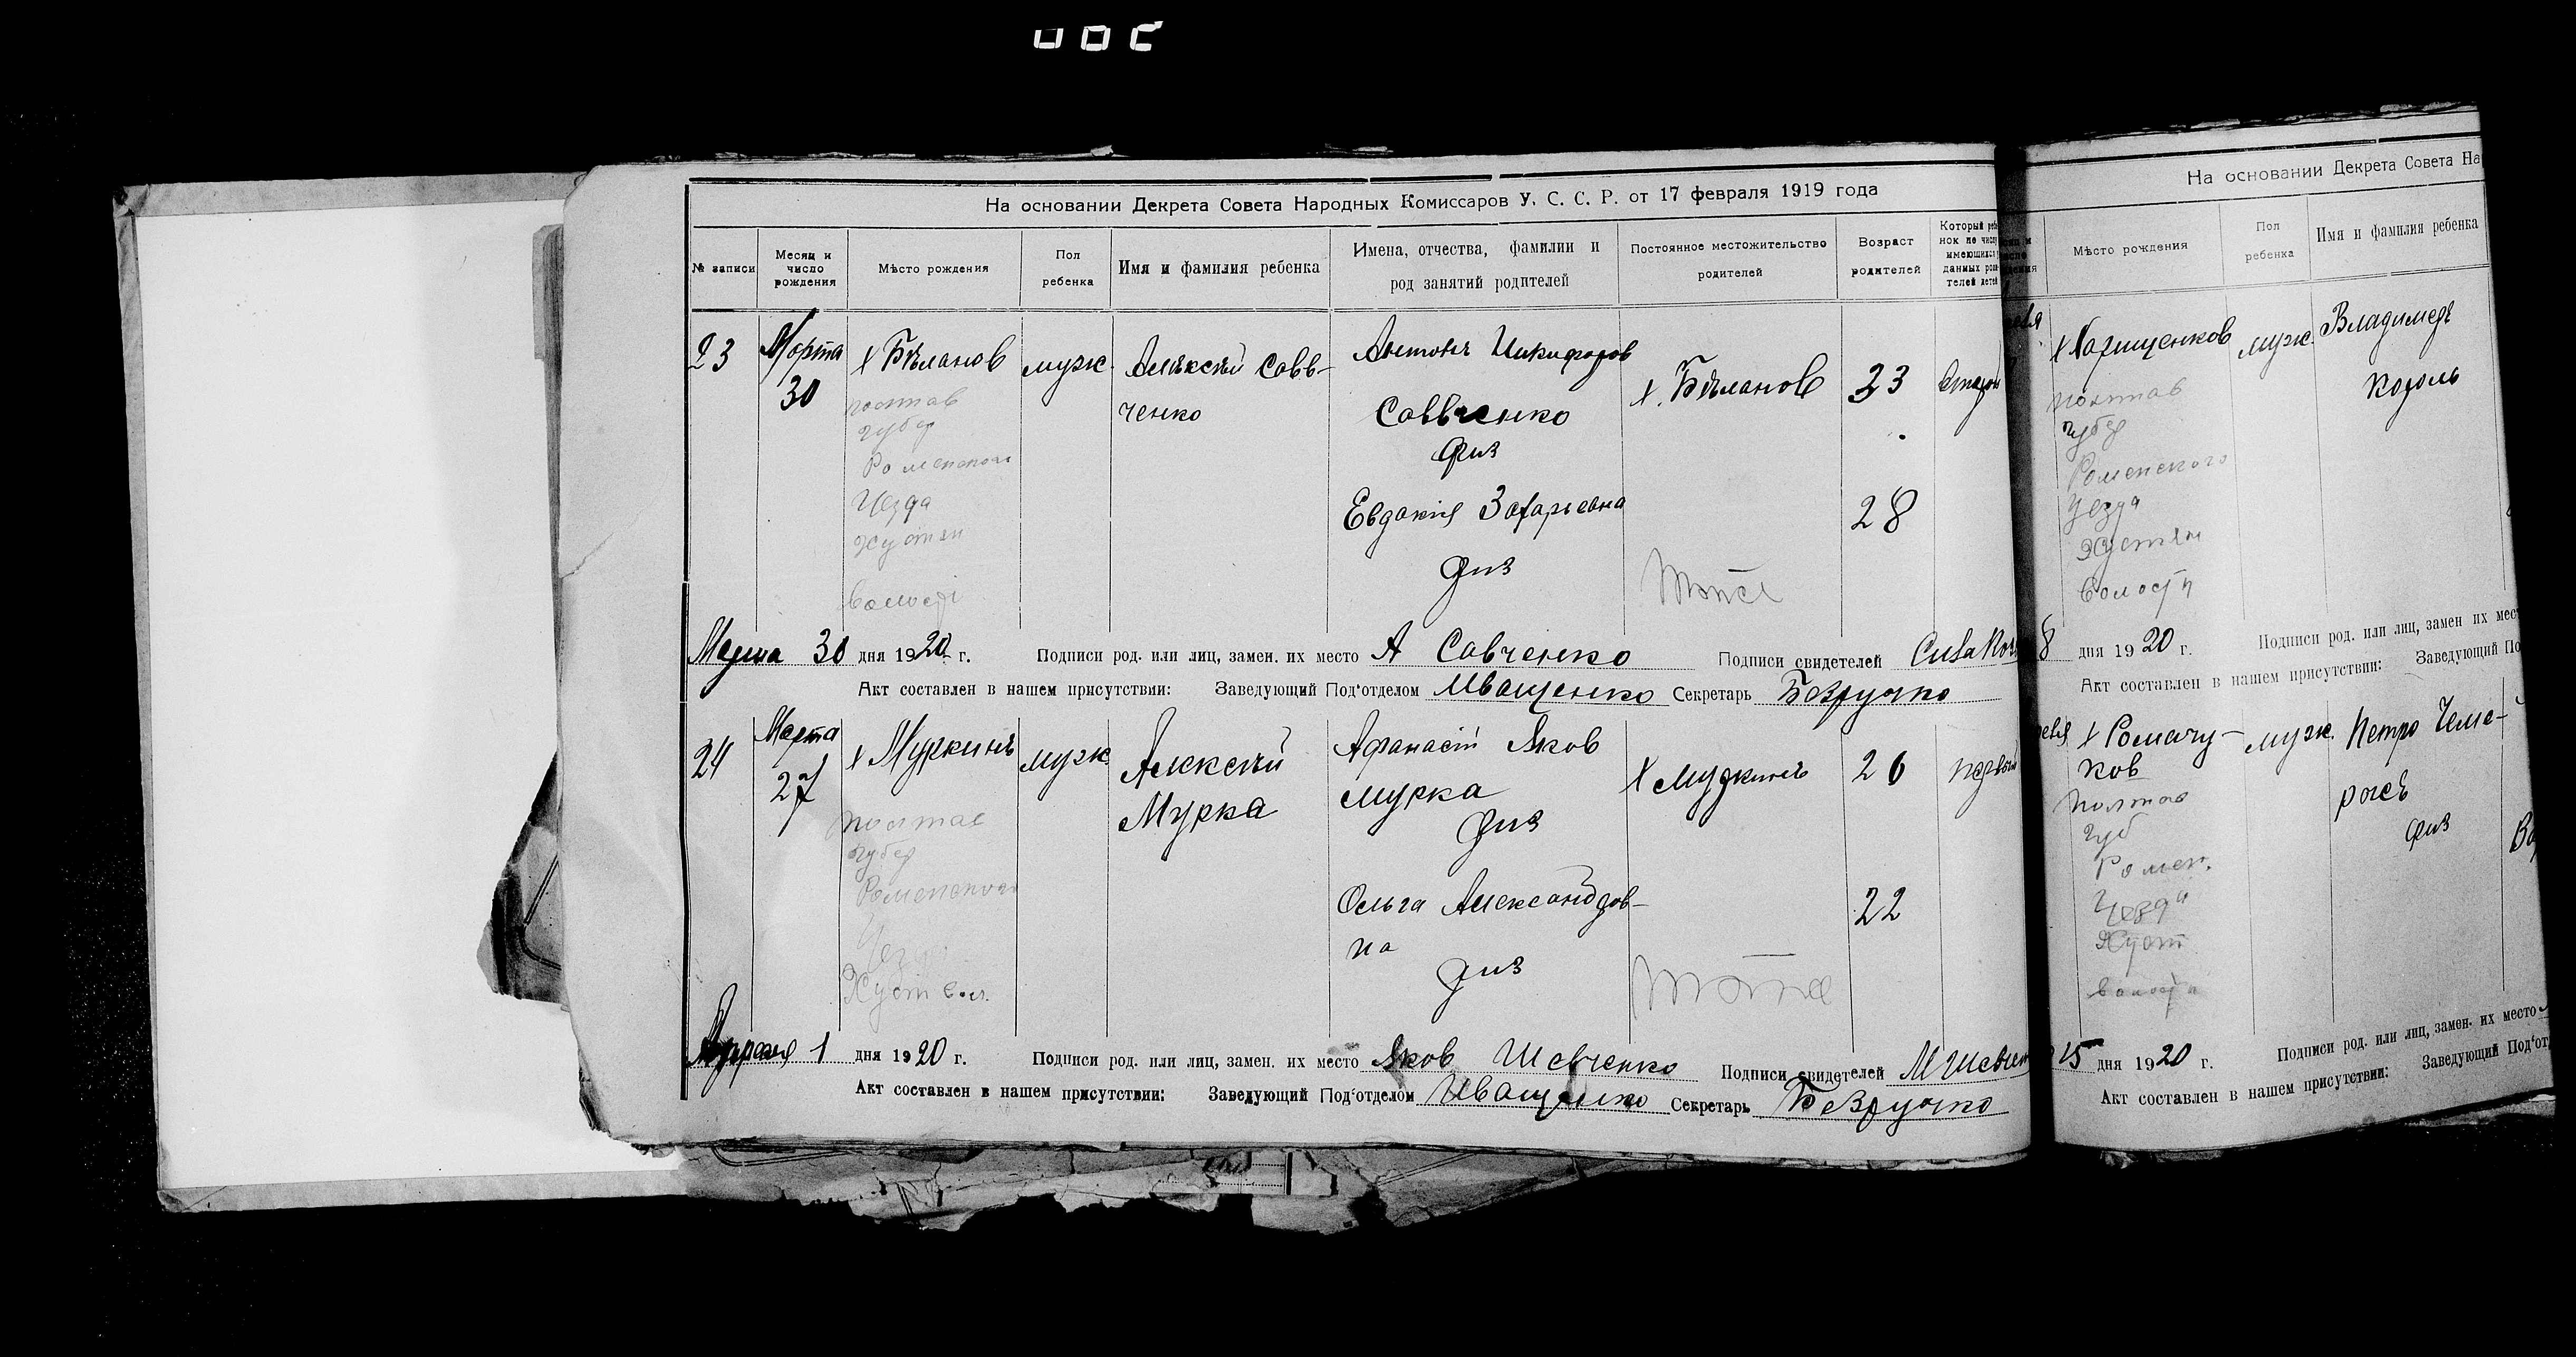 На основании Декрета Совета Народных Комиссаров У. С. С. Р. от 17 февраля 1919 года
№ записи
Месяц и число рождения
Мѣсто рождения
Пол ребенка
Имя и фамилия ребенка
Имена, отчества, фамилии и род занятий родителей
Постоянное местожительство родителей
Возраст родителей
Который ребе
нок по числу
имеющихся у
данных роди
телей детей
23
Марта
30
х Бѣланов
полтав
губер
Роменского
Уезда
Хустян
волости
муж
Алѣксѣй Савв-
ченко
Антонъ Никифоров
Саввченко
физ
Евдокія Захарьевна
физ
х. Бѣланов
23
28
Марта 30 дня 1920 г. Подписи род. или лиц, замен. их место А Савченко Подписи свидетелей
Акт составлен в нашем присутствии: Заведующий Под'отделом Иващенко Секретарь Безручко
24
Марта
27
х Муркинъ
полтав
губер
Роменского
Уезд
Хуст вол.
муж
Алексѣй
Мурка
Афанасій Яков
Мурка
физ
Ольга Александров-
на
физ
х Муркинъ
26
22
первый
Апреля 1 дня 1920 г. Подписи род. или лиц, замен. их место Яков Шевченко Подписи свидетелей М Шевчен
Акт составлен в нашем присутствии: Заведующий Под'отделом Иващенко Секретарь Безручко
На основании Декрета Совета На
Мѣсто рождения
Пол ребенка
Имя и фамилия ребенка
полтав
губер
Роменского
Уезда
Хустян
волости
муж.
Владимер
Король
8 дня 1920 г. Подписи род. или лиц, замен их мес
Акт составлен в нашем присутствии: Заведующий По
х Ромачу-
ков
полтав
губ
Ромен.
Уезда
Хуст
волости
муж.
Петро Чеме-
рысъ
физ
15 дня 1920 г. Подписи род. или лиц, замен. их место
Акт составлен в нашем присутствии: Заведующий Под'от